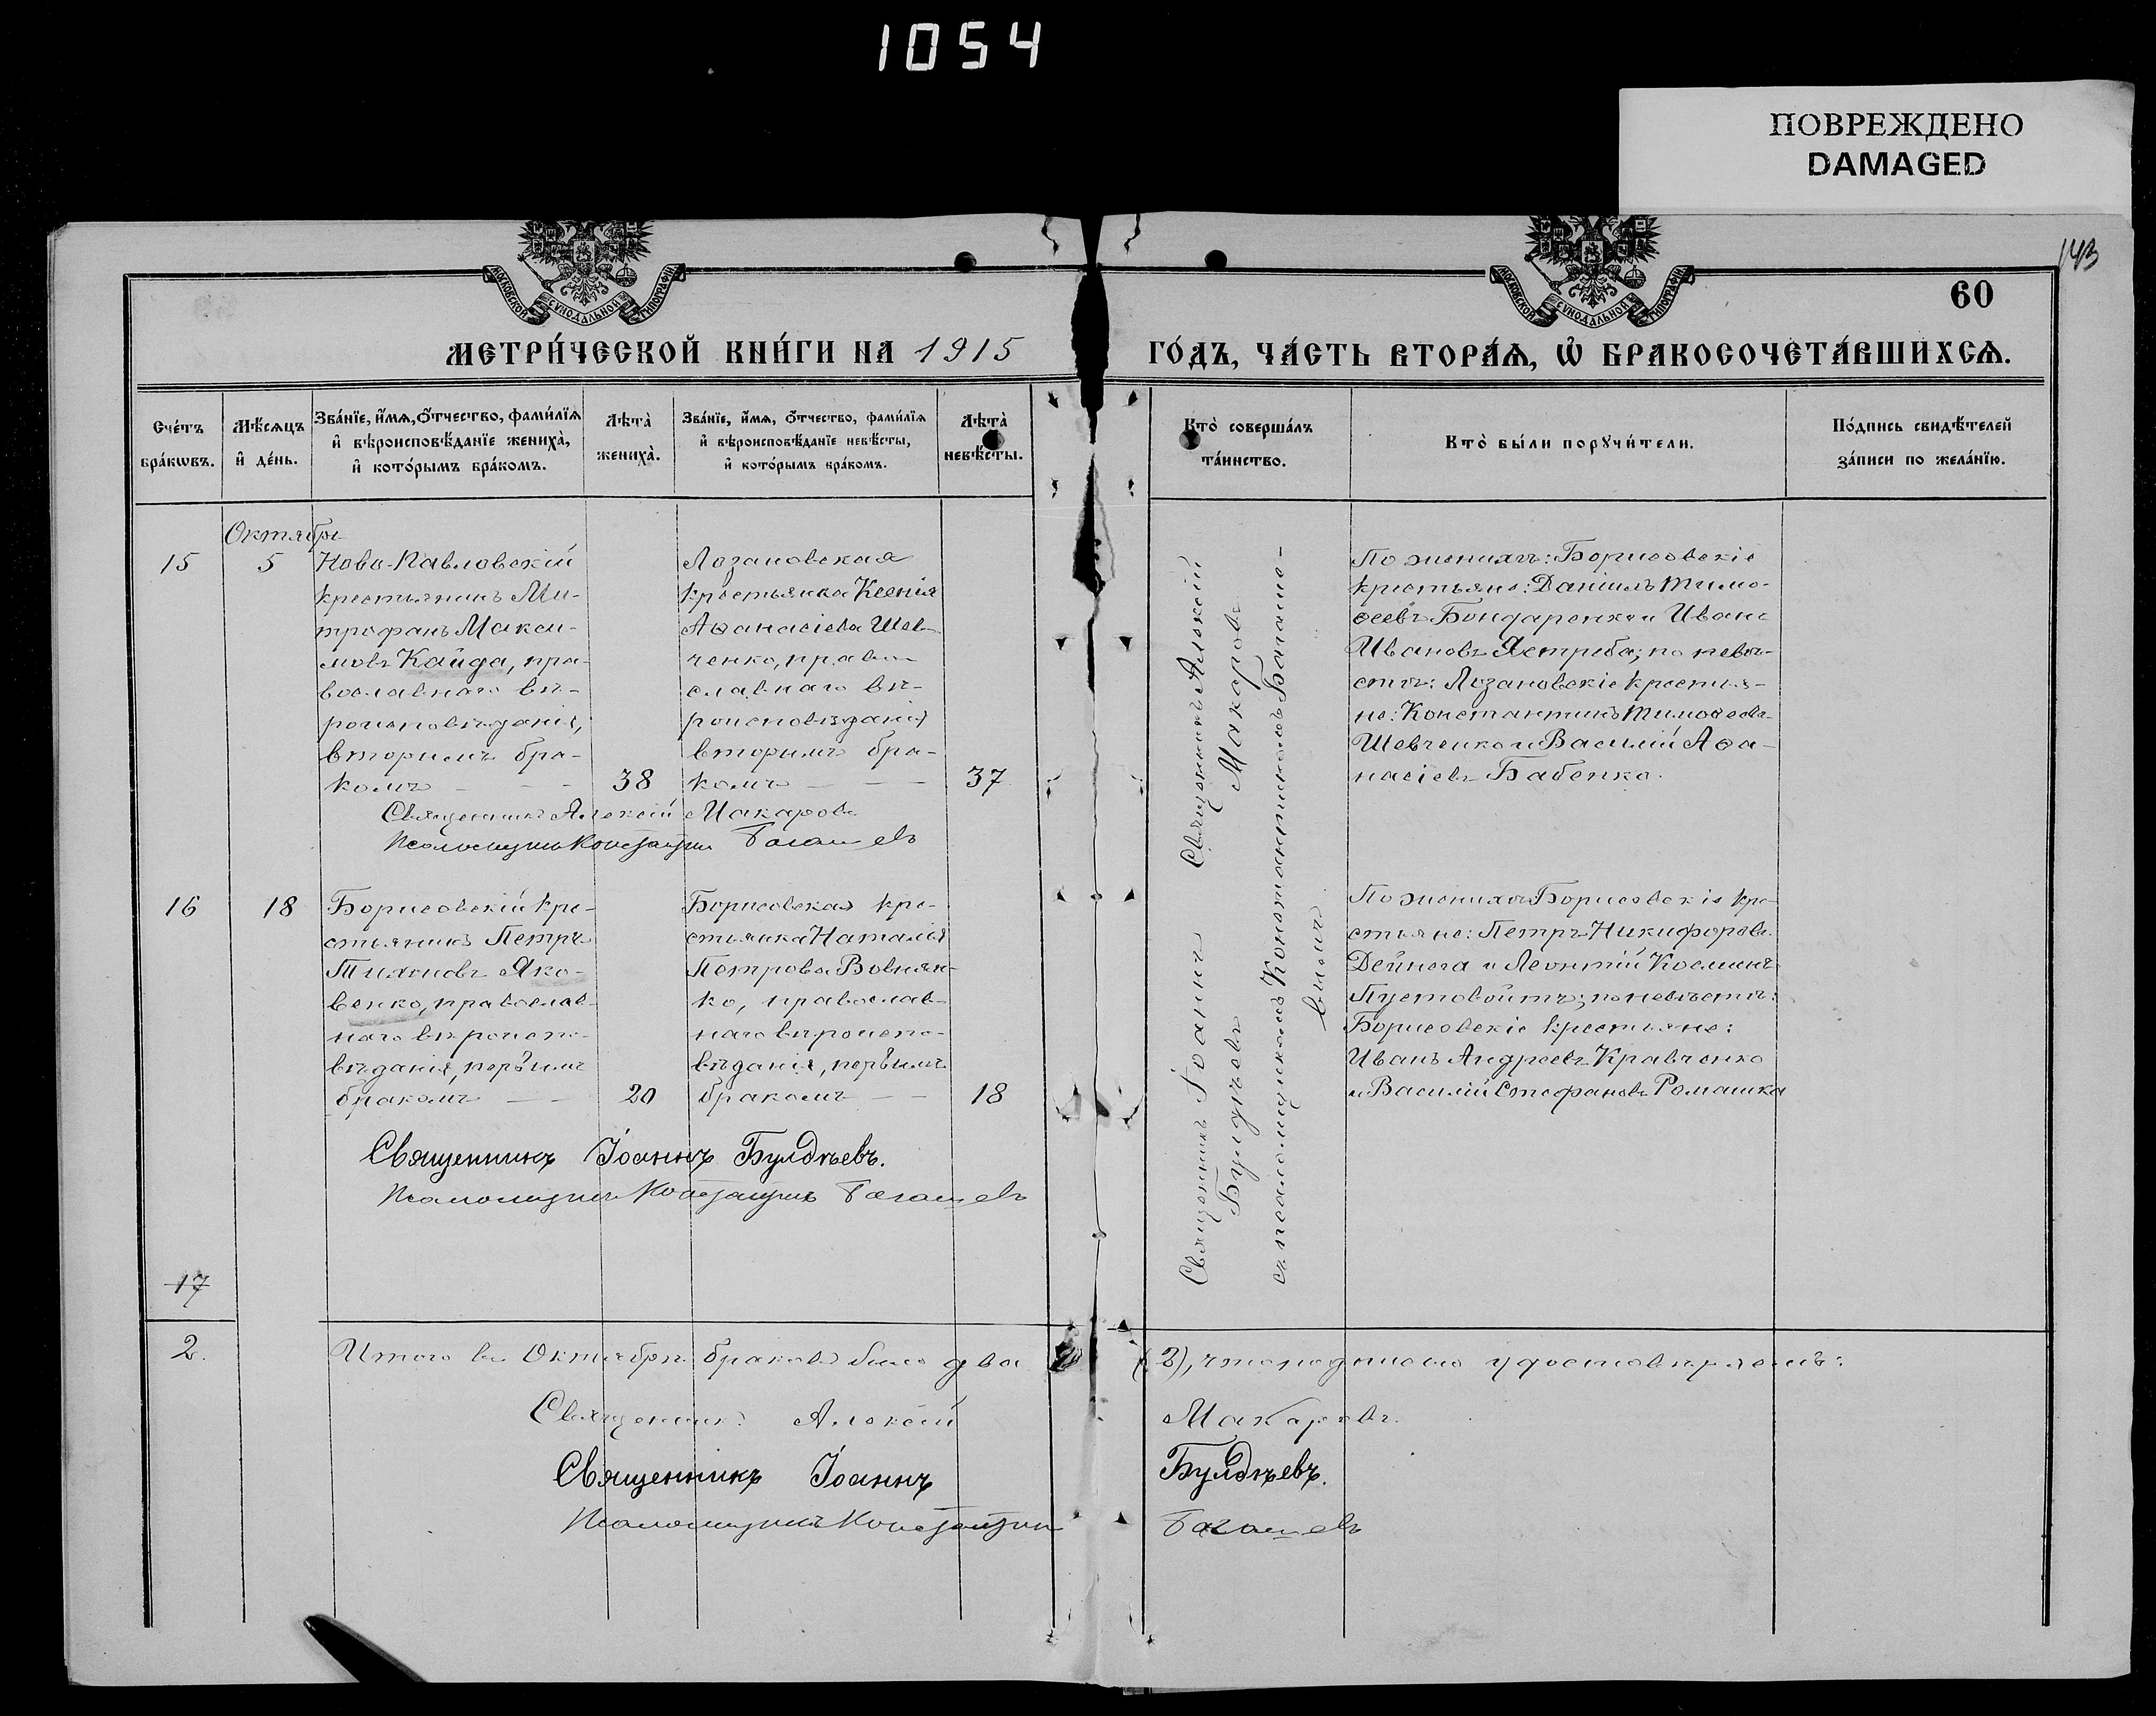 1054
ПОВРЕЖДЕНО
DAMAGED
143
МОСКОВСКОЙ СѴНОДАЛЬНОЙ ТИПОГРАФІИ
МОСКОВСКОЙ СѴНОДАЛЬНОЙ ТИПОГРАФІИ
60
МЕТРИ́ЧЕСКОЙ КНИ́ГИ НА 1915
ГО́ДЪ, ЧА́СТЬ ВТОРА́Ѧ, Ѽ БРАКОСОЧЕТА́ВШИХСѦ.
Сче́тъ бра́кѡвъ.
Мѣ́сѧцъ и҆ де́нь.
Зва́нїе, и҆́мѧ, ѻ҆́тчество, фами́лїѧ
и҆ вѣроисповѣ́данїе жениха̀,
и҆ кото́рымъ бра́комъ.
Лѣта̀ жениха̀.
Зва́нїе, и҆́мѧ, ѻ҆́тчество, фами́лїѧ
и҆ вѣроисповѣ́данїе невѣ́сты,
и҆ кото́рымъ бра́комъ.
Лѣта̀ невѣ́сты.
Кто̀ соверша́лъ та́инство.
Кто̀ бы́ли порꙋчи́тели.
По́дпись свидѣ́телей
за́писи по жела́нїю.
Октябрь
15
5
Ново-Павловскій
крестьянинъ Ми-
трофанъ Макси-
мовъ Кайда, пра-
вославнаго вѣ-
роисповѣданія,
вторымъ бра-
комъ – – –
38
Лозановская
крестьянка Ксенія
Аѳанасіева Шев-
ченко, право-
славнаго вѣ-
роисповѣданія
вторымъ бра-
комъ – – –
37
Священникъ Алексій Макаровъ
Псаломщикъ Константинъ Багашевъ
Священникъ Алексій
Макаровъ
По женихѣ: Борисовскіе
крестьяне: Даніилъ Тимо-
ѳеевъ Бондаренко и Иванъ
Ивановъ Ястреба; по невѣ-
стѣ: Лозановскіе крестья-
не: Константинъ Тимоѳеевъ
Шевченко и Василій Аѳа-
насіевъ Бабенко.
16
18
Борисовскій кре-
стьянинъ Петръ
Тихоновъ Яко-
венко, православ-
наго вѣроиспо-
вѣданія, первымъ
бракомъ – –
20
Борисовская кре-
стьянка Наталія
Петрова Вовнян-
ко, православ-
наго вѣроиспо-
вѣданія, первымъ
бракомъ – –
18
Священникъ Іоаннъ Булдѣевъ.
Псаломщикъ Константинъ Багашевъ
Священникъ Іоаннъ
Булдѣевъ
съ псаломщикомъ Константиномъ Багаше-
вымъ
По женихѣ Борисовскіе кре-
стьяне: Петръ Никифоровъ
Дейнега и Леонтій Косминъ
Пустовойтъ; по невѣстѣ:
Борисовскіе крестьяне:
Иванъ Андреевъ Кравченко
и Василій Стефановъ Ромашка
17
2.
Итого въ Октябрѣ браковъ было два (2), что подписью удостовѣряемъ:
Священникъ Алексій Макаровъ.
Священникъ Іоаннъ Булдѣевъ.
Псаломщикъ Константинъ Багашевъ